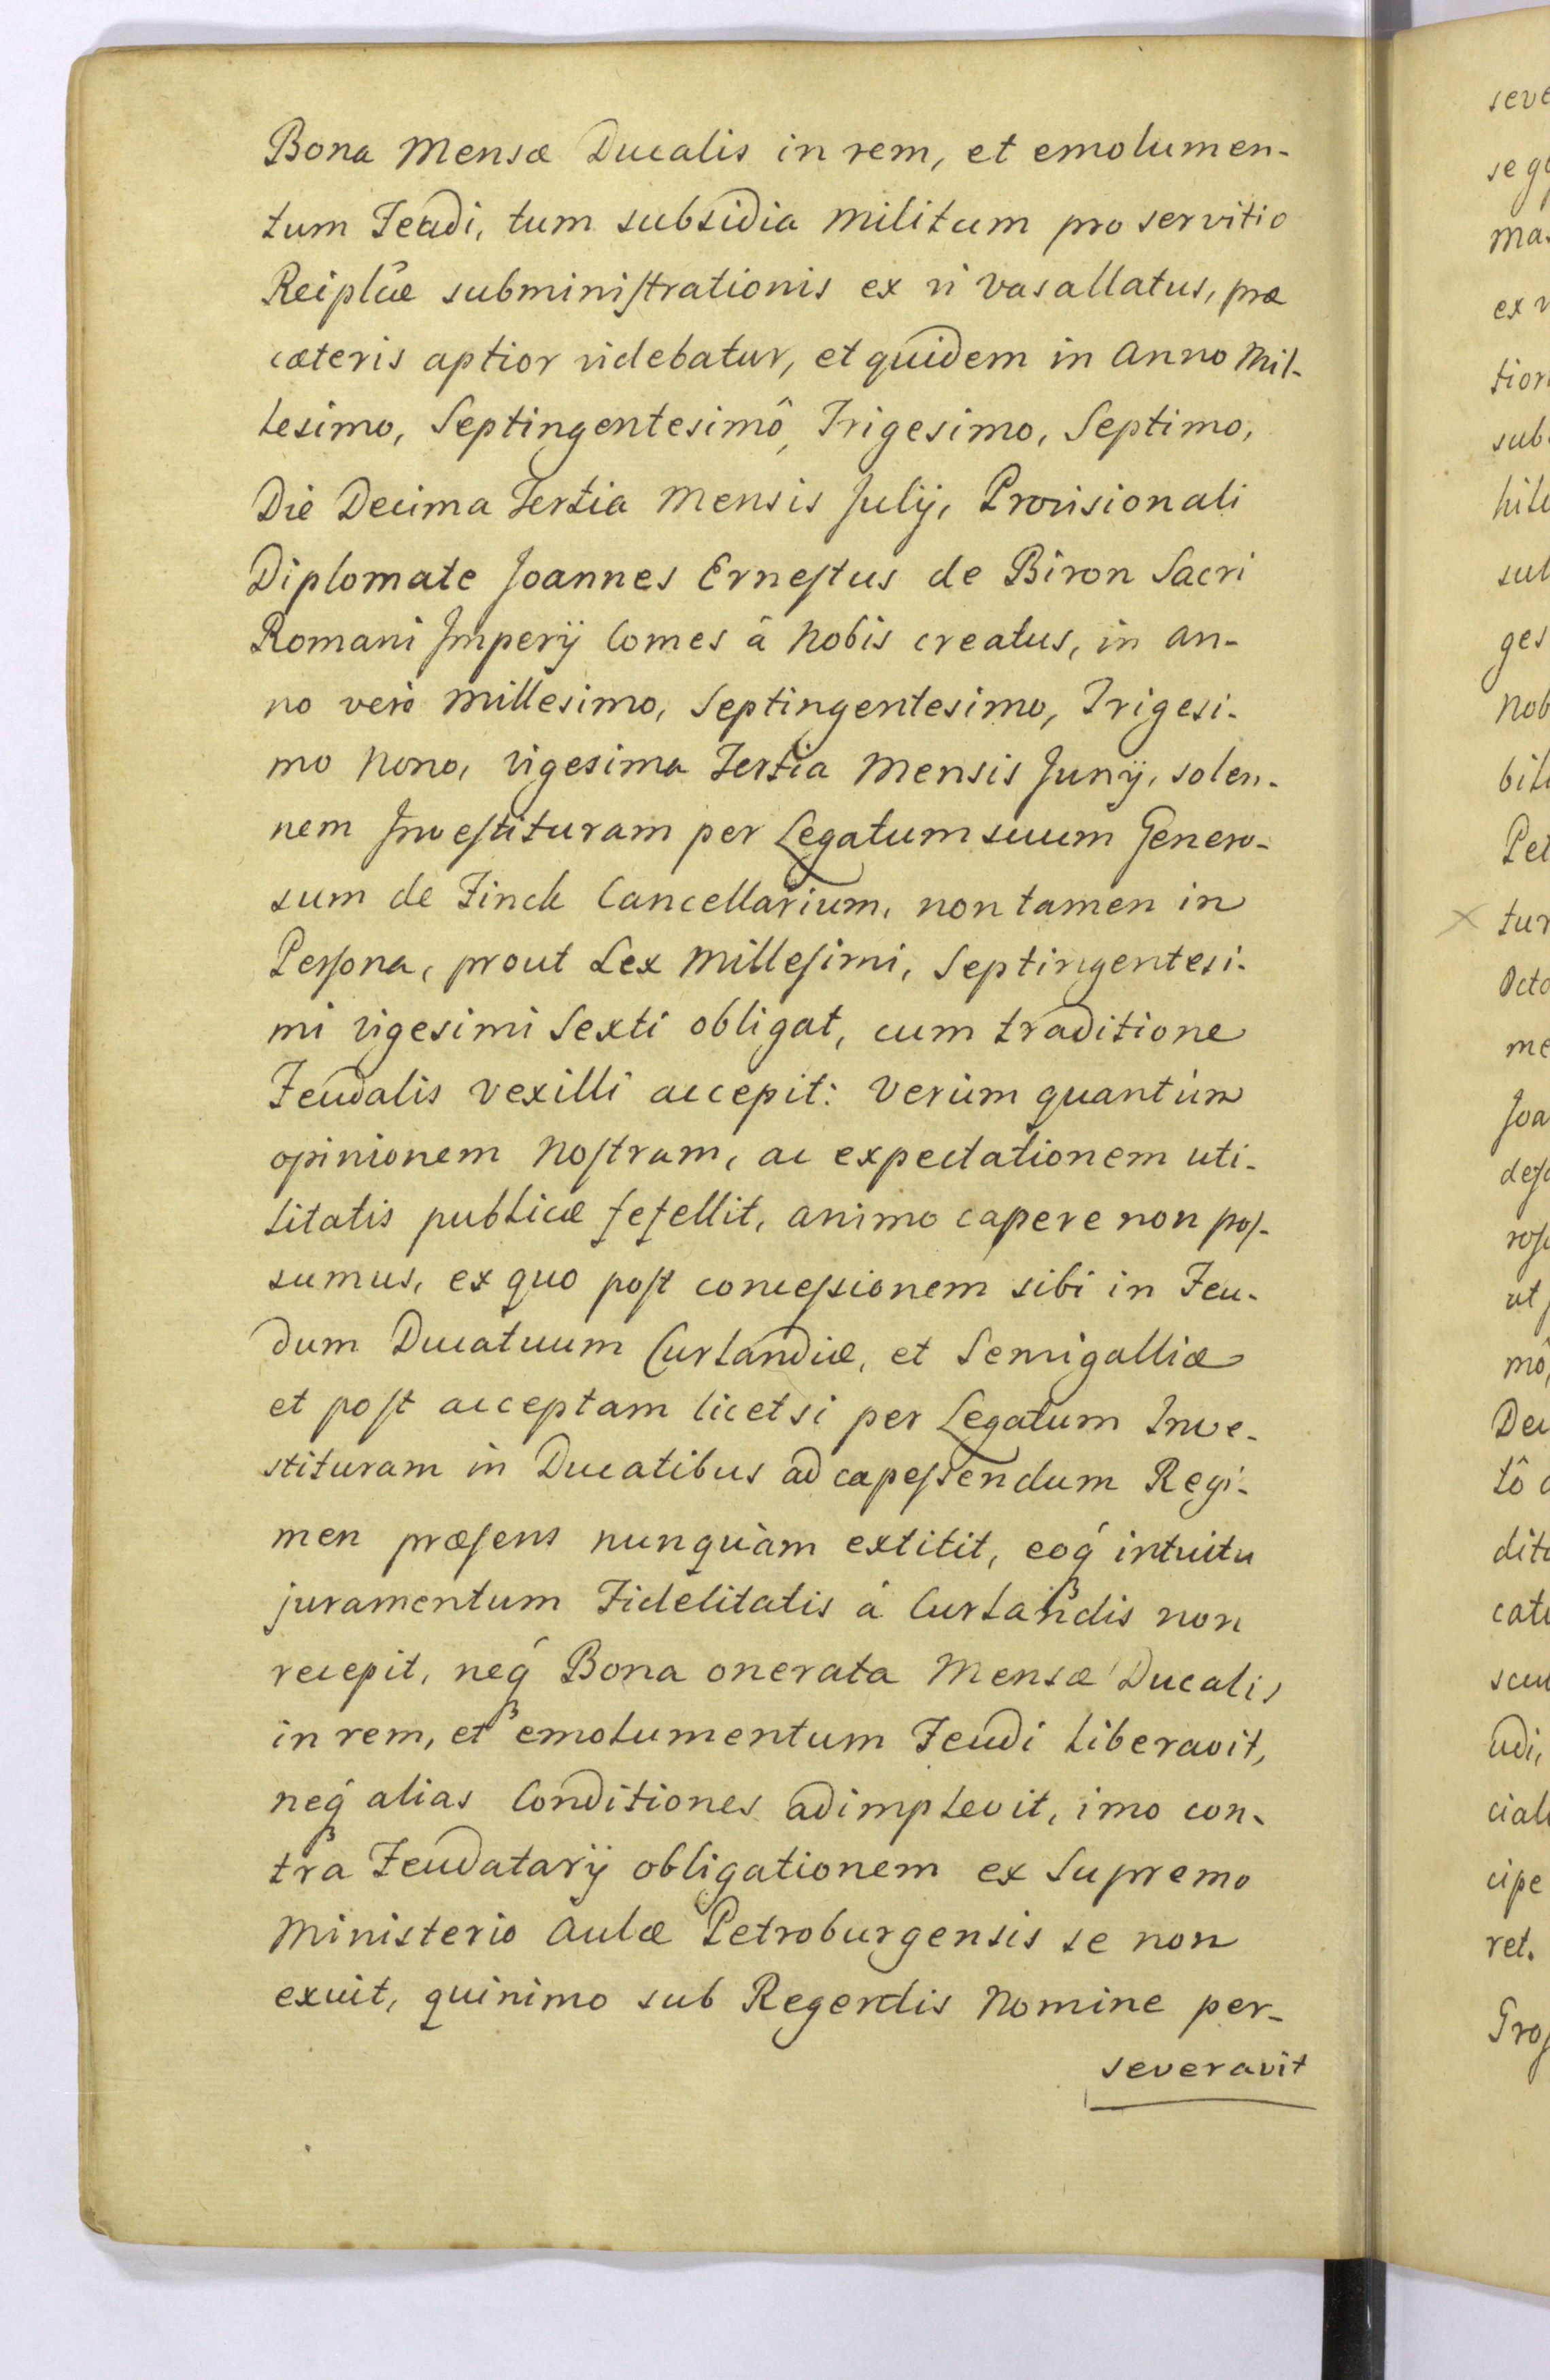 Bona Mensæ Ducalis in rem, et emolumen-
tum Feudi, tum subsidia militum pro servitio
Reiplœ̂ subminiſtrationis ex vi vasallatus, præ
cæteris aptior videbatur, et quidem in Anno Mil-
lesimo, Septingentesimô, Trigesimo, Septimo,
Die Decima Tertia Mensis Julij, Provisionali
Diplomate Joannes Erneſtus de Biron Sacri
Romani Imperij Comes â Nobis creatus, in an-
no verò Millesimo, Septingentesimo, Trigesi-
mo Nono, vigesima Tertia Mensis Junij, solen-
nem Inveſtituram per Legatum suum Genero-
sum de Finck Cancellarium, non tamen in
Perſona, prout Lex Milleſimi, Septingentesi-
mi vigesimi Sexti obligat, cum traditione
Feudalis vexilli accepit: Verùm quantùm
opinionem Noſtram, ac expectationem uti-
litatis publicæ fefellit, animo capere non poſ-
sumus, ex quo poſt conceſsionem sibi in Feu-
dum Ducatuum Curlandiæ, et Semigalliæ
et poſt acceptam licet si per Legatum Inve-
stituram in Ducatibus ad capeſsendum Regi-
men præſens nunquàm extitit, eoq́ꝫ intuitu
juramentum Fidelitatis á Curlandis non
recepit, neq́ꝫ Bona onerata Mensæ Ducalis
in rem, et emolumentum Feudi liberavit,
neq́ꝫ alias Conditiones adimplevit, imo con-
tra Feudatarij obligationem ex Supremo
Ministerio Aulæ Petroburgensis se non
exuit, quinimo sub Regendis Nomine per-
severavit
seve
ma
ex v
tion
sub
hil
sub
ges
Nob
bil
Pet
tur
Octo
me
Joa
deſ
roſ
ut
mô,
Dec
tô
dit
cat
udi,
cial
cipe
ret.